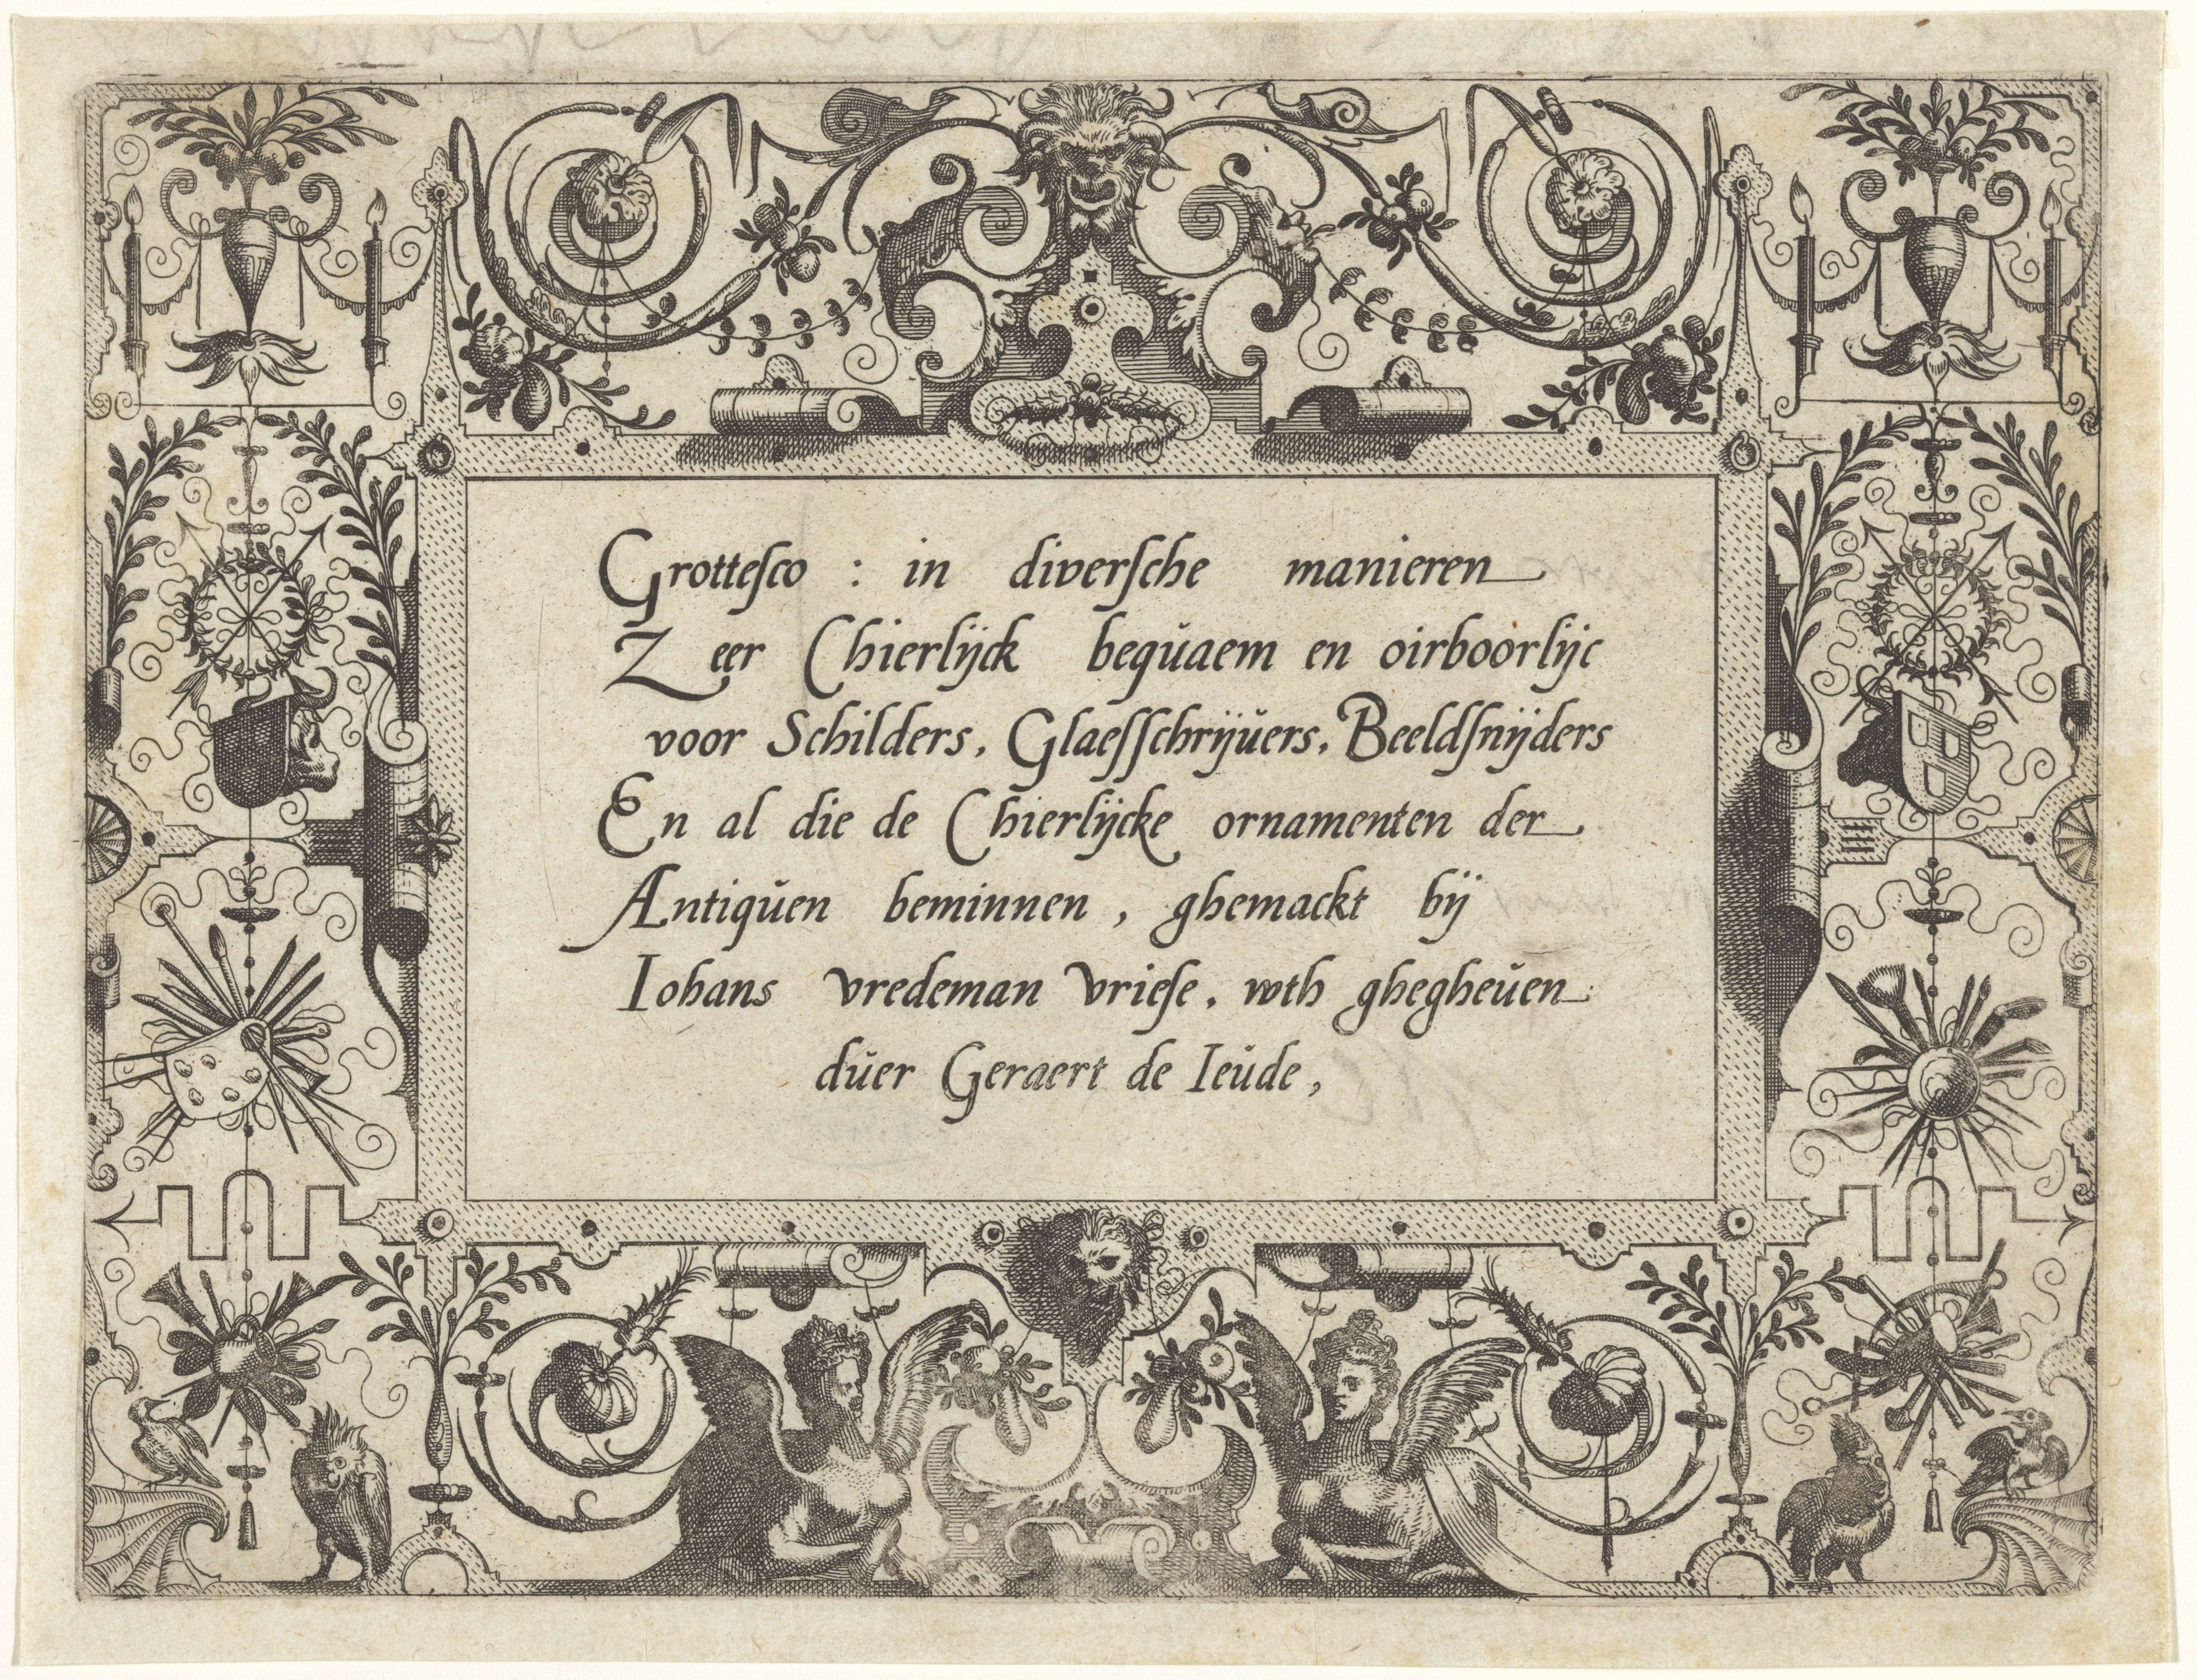 Grotteſco : in diverſche manieren
Zeer Chierlijck beqŭaem en oirboorlijc
voor Schilders, Glaeſſchrijŭers, Beeldſnijders
En al die de Chierlijcke ornamenten der
Antiqŭen beminnen, ghemackt bij
Iohans vredeman vrieſe, wth ghegheŭen
dŭer Geraert de Ieŭde,